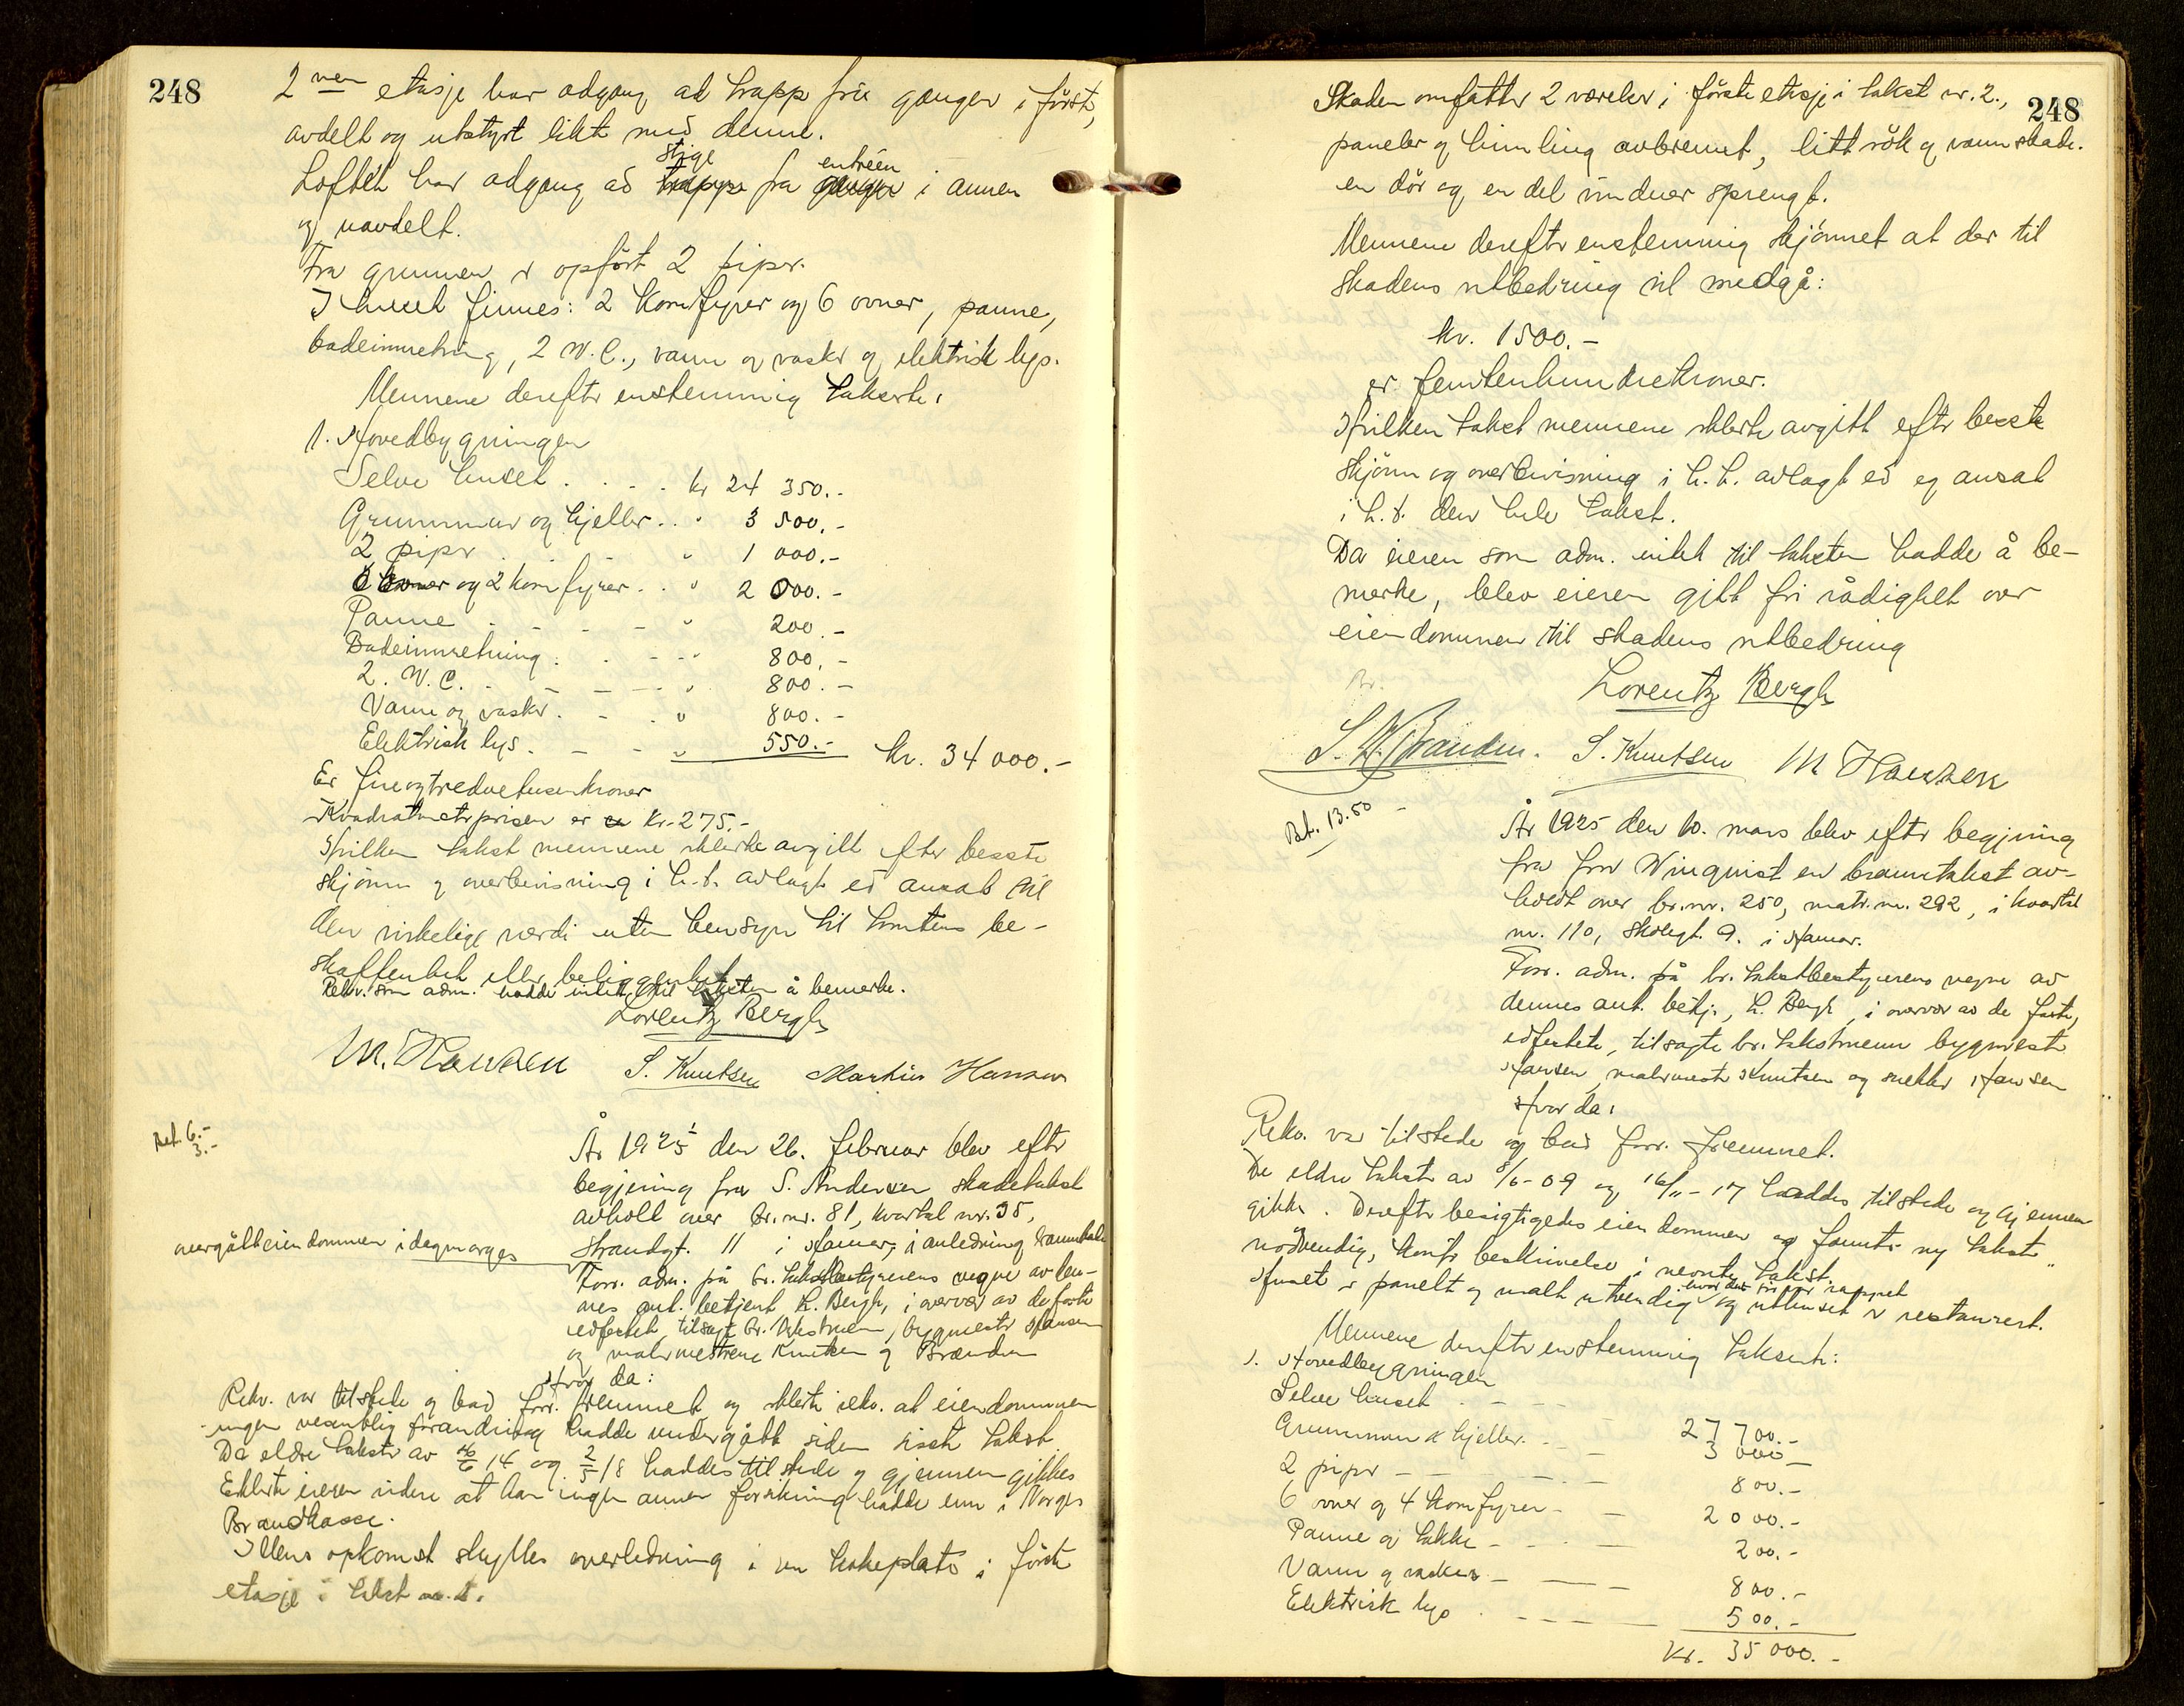 248
2nen etasje har adgang ad trapp fra gangen i först,
avdelt og utstyrt likt med denne.
Loftet har adgang ad stige fra entréen i annen
og uavdelt.
Fra grunnen er opfört 2 piper.
I huset finnes: 2 komfyrer og 6 ovner, panne,
badeinnretning, 2 W.C., vann og vasker og elektrisk lys.
Mennene derefter enstemmig takserte:
1. Hovedbygningen
Selve huset . . . . kr 24 350.-
Grunnmur og kjeller . . " 3 500.-
2 piper . . . " 1 000.-
6 ovner og 2 komfyrer . . " 2 000.-
Panne . - - - " 200.-
Badeinnretning . . - - " 800.-
2 W.C. . - - - " 800.-
Vann og vasker . - . " 800.-
Elektrisk lys . - - " 550.- kr. 34 000.-
Er fireogtredvetusenkroner
Kvadratmeterprisen er kr. 275.-
Hvilken takst mennene erklerte avgitt efter besste
skjönn og overbevisning i h.t. avlagt ed ansat til
den virkelige værdi uten hensyn til tomtens be-
skaffenhet eller beliggenhet
Rekv. som adm. hadde intet til taksten å bemerke.
Lorentz Bergh
M. Hansen S. Knutsen Markus Hansen
Bet. 6.-
3.-
År 1925 den 26. februar blev efter
begjering fra S. Andersen skadetakst
avholt over br.nr. 81, kvartal nr. 35,
Strandgt. 11 i Hamar, i anledning brannskade
overgått eiendommen idag morges
Forr. adm. på br. takstbestyrerens vegne av den-
nes aut. betjent L. Bergh, i overvær av de faste
edfestet tilsagt br. takstmenn, bygmester Hansen
og malermestrene Knutsen og Brænden
Hvor da:
Rekv. var tilstede og bad forr. fremmet og erklerte rekv. at eiendommen
ingen vesentlig forandring hadde undergått siden siste takst
De eldre takster av 26/6 14 og 2/5 18 haddes tilstede og gjennemgikkes
Erklerte eieren videre at han ingen annen forsikring hadde enn i Norges
Brandkasse.
Ildens opkomst skyldes overledning i en kokeplate i förste
etasje i takst nr. 2.
248
Skaden omfatter 2 værelser i förste etasje i takst nr. 2.,
paneler og himling avbrennt, litt rök og vannskade.
en dör og en del vinduer sprengt.
Mennene derefter enstemmig skjönnet at der til
skadens utbedring vil medgå:
kr. 1500.-
er femtenhundrekroner.
Hvilken takst mennene erklerte avgitt efter besste
skjönn og overbevisning i h.t. avlagt ed og ansat
i h.t. den hele takst.
Da eieren som adm. intet til taksten hadde å be-
merke, blev eieren gitt fri rådighet over
eiendommen til skadens utbedring
Lorentz Bergh
S. W. Brænden. S. Knutsen M Hansen
Bet. 13.50
År 1925 den 10. mars blev efter begjering
fra fru Winquist en branntakst av-
holdt over br.nr. 250, matr.nr. 292, i kvartal
nr. 110, Skolegt. 9. i Hamar.
Forr. adm. på br. takstbestyrerens vegne av
dennes aut. betj., L. Bergh, i overvær av de faste,
edfestete, tilsagte br. takstmenn bygmester
Hansen, malermester Knutsen og snekker Hansen
Hvor da:
Rekv. var tilstede og bad forr. fremmet.
De eldre takster av 8/6-09 og 16/11-17 haddes tilstede og gjennem
gikkes. Derefter besigtigedes eiendommen og fantes ny takst
nödvendig, konfr. beskrivelse i nevnte takst.
Huset er panelt og malt utvendig hvor det för var rappet og uthuset er restaurert.
Mennene derefter enstemmig takserte:
1. Hovedbygningen
Selve huset . - - - 27 700.-
Grunnmur og kjeller . - - 3 000.-
2 piper - - - - 800.-
6 ovner og 4 komfyrer - - 2000.-
Panne og takke - - - 200.-
Vann og vasker - - - 800.-
Elektrisk lys . - - - 500.-
Kr. 35 000.-